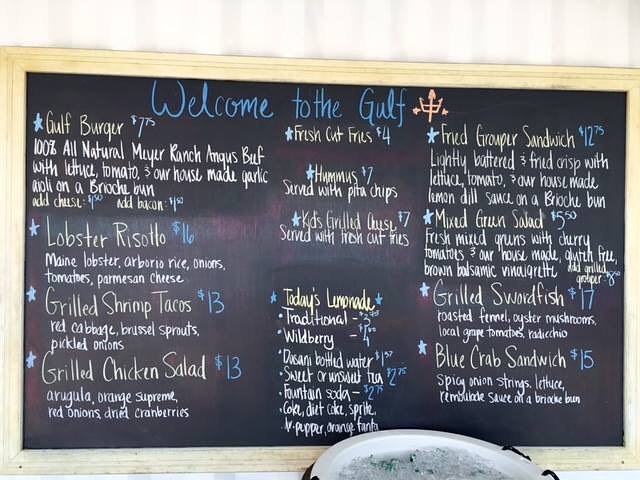 Welcome to the Gulf
Gulf Burger $7.75
100% All Natural Meyer Ranch Angus Beef
with lettuce, tomato, & our house made garlic
aioli on a Brioche bun
add cheese: $1.50 add bacon: $1.50
Lobster Risotto $16
Maine lobster, arborio rice, onions,
tomatoes, parmesan cheese
Grilled Shrimp Tacos $13
red cabbage, brussel sprouts,
pickled onions
Grilled Chicken Salad $13
arugula, orange supreme,
red onions, dried cranberries
Fresh Cut Fries $4
Hummus $7
Served with pita chips
Kids Grilled Cheese $7
Served with fresh cut fries
Today's Lemonade
Traditional -
Wildberry -
Dasani bottled water
Sweet or unsweet tea $2.75
fountain soda - $2.75
Coke, diet coke, sprite,
dr. pepper, orange fanta
Fried Grouper Sandwich $12.75
Lightly battered & fried crisp with
lettuce, tomato, & our house made
lemon dill sauce on a Brioche bun
Mixed Green Salad $5.50
Fresh mixed greens with cherry
tomatoes & our house made, gluten free,
brown balsamic vinaigrette add grilled
grouper:
Grilled Swordfish $17
roasted fennel, oyster mushrooms,
local grape tomatoes, radicchio
Blue Crab Sandwich $15
Spicy onion strings, lettuce,
remoulade sauce on a brioche bun